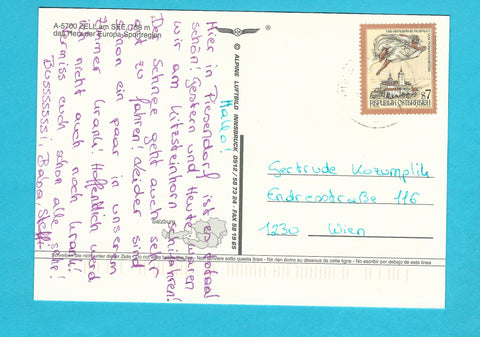 A-5700 ZELL am SEE, 758 m
das Herz der Europa-Sportregion
Hallo!
Hier in Piesendorf ist es total
schön! Gestern und Heute waren
wir am Kitzsteinhorn schifahren!
Der Schnee geht auch sehr
gut zu fahren! Leider sind
schon ein paar in unserem
Zimmer krank! Hoffentlich werd
ich nicht auch noch krank!
Vermiss euch schon alle sehr!
Bussssssi, Baba, Steffi
© ALPINE LUFTBILD INNSBRUCK 0512/58 73 24 - FAX 58 19 65
Salzburg
S 7
REPUBLIK ÖSTERREICH
Gertrude Kozumplik
Endresstraße 116
1230 Wien
Schreiben Sie nicht unter dieser Zeile / Do not write below this line / Non scrivere sotto questa linea - Ne rien écrire au dessous de cette ligne - No escribir por debajo de esta línea